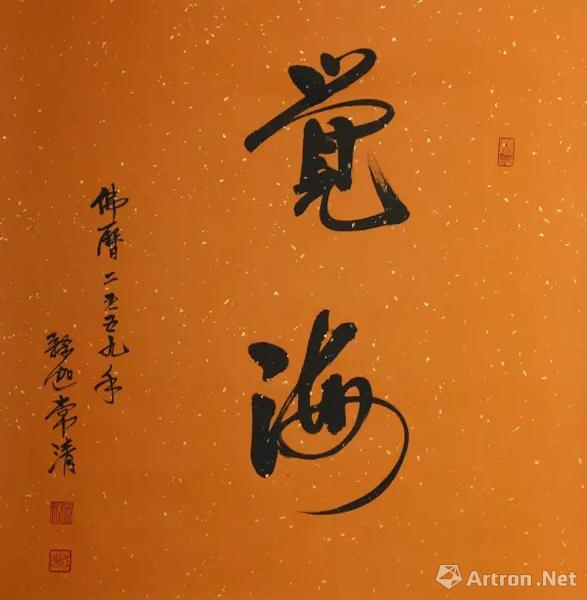 觉海
佛曆二五五九年
释迦常清
Artron.Net